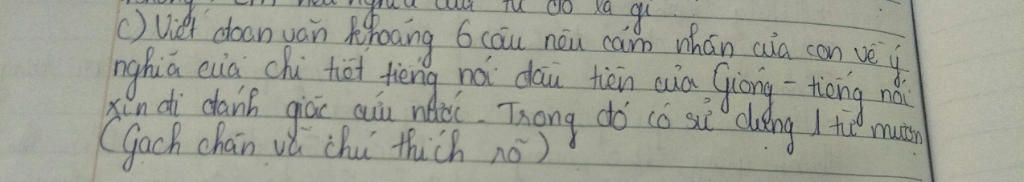 nghĩa của từ đó là gì
c) Viết đoạn văn khoảng 6 câu nêu cảm nhận của con về ý
nghĩa của chi tiết tiếng nói đầu tiên của Gióng - tiếng nói
xin đi đánh giặc cứu nước. Trong đó có sử dụng 1 từ mượn
(Gạch chân và chú thích rõ)